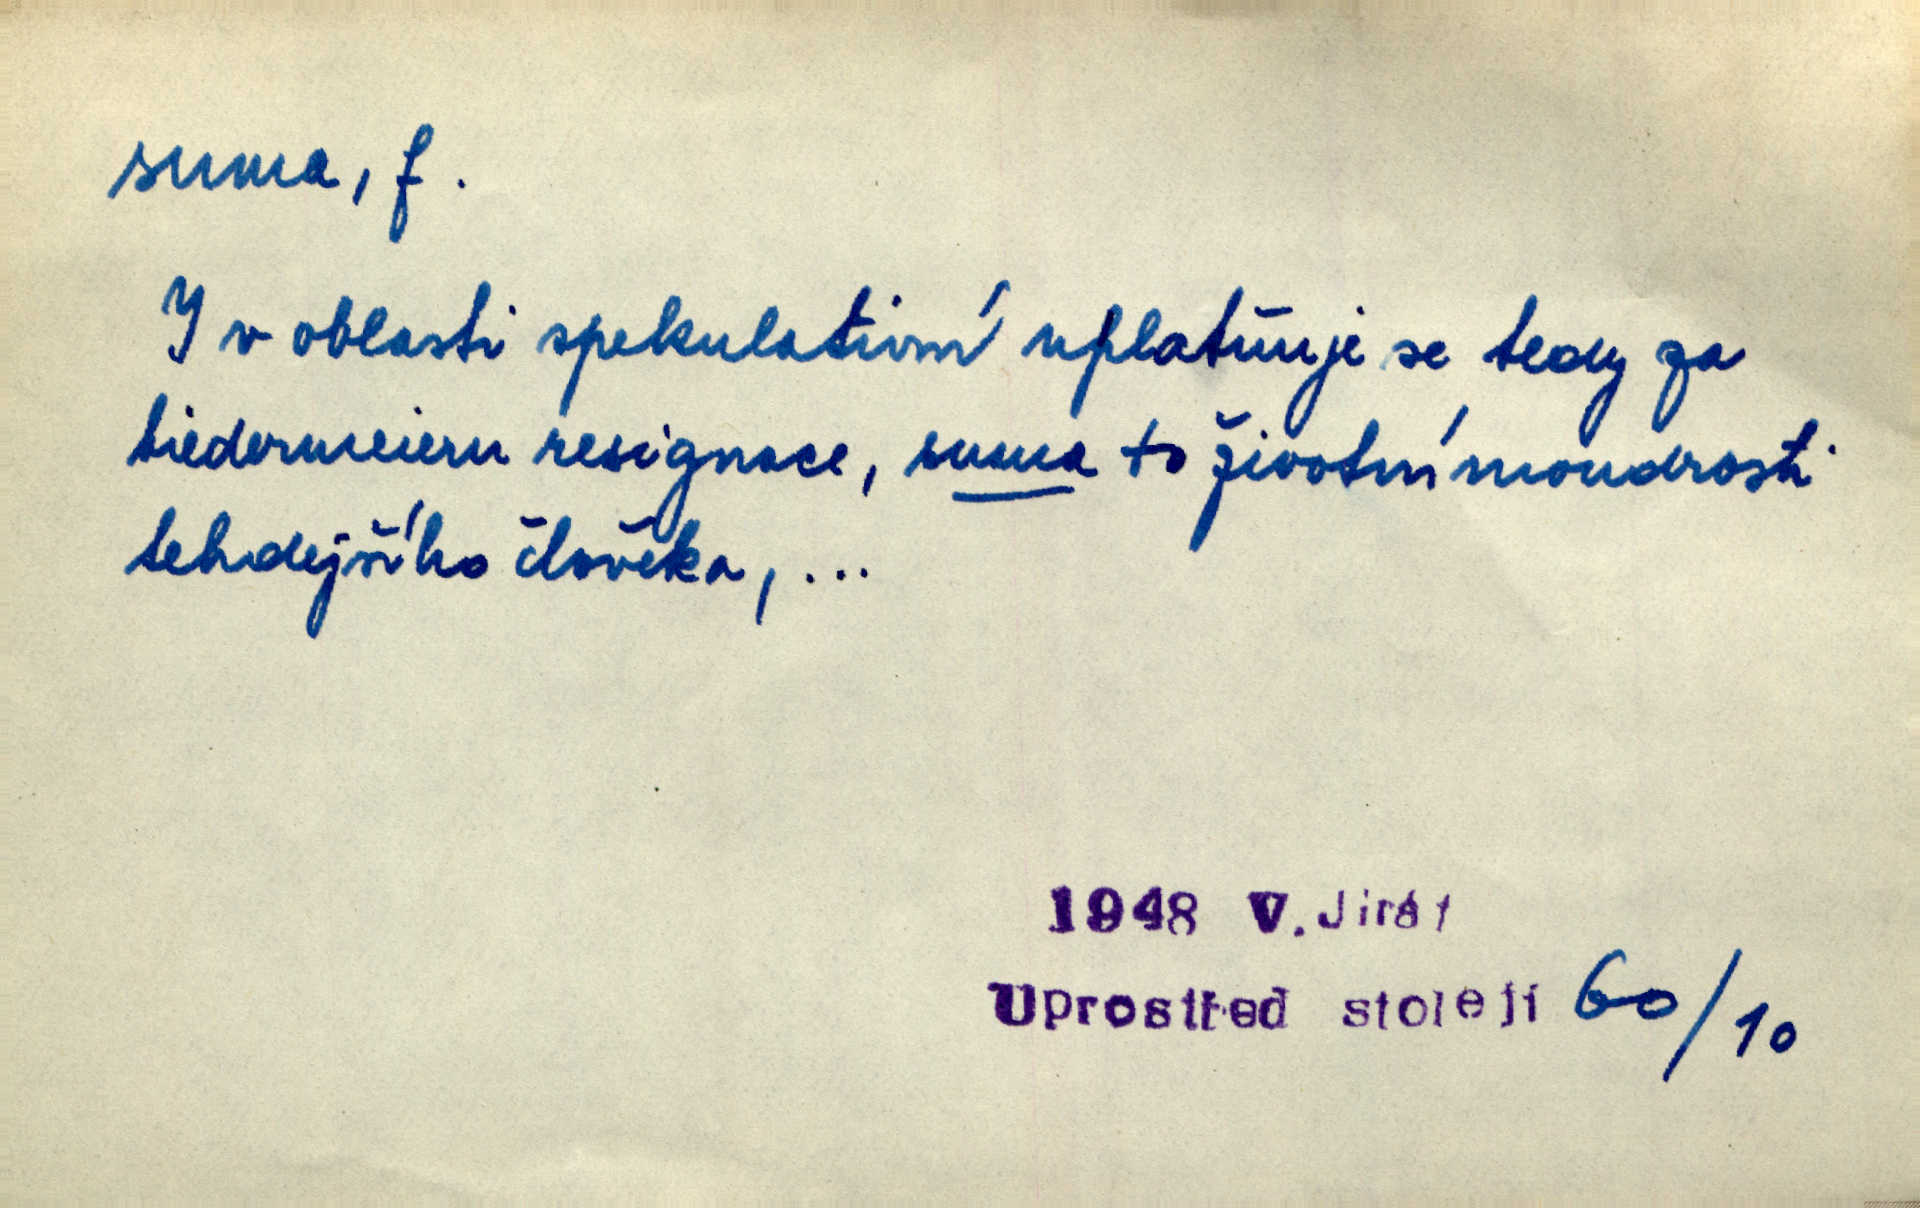 suma, f.
I v oblasti spekulativní uplatňuje se tedy za
biedermeieru resignace, suma to životní moudrosti
tehdejšího člověka, ...
1948 V. Jirát
Uprostřed století 60/10